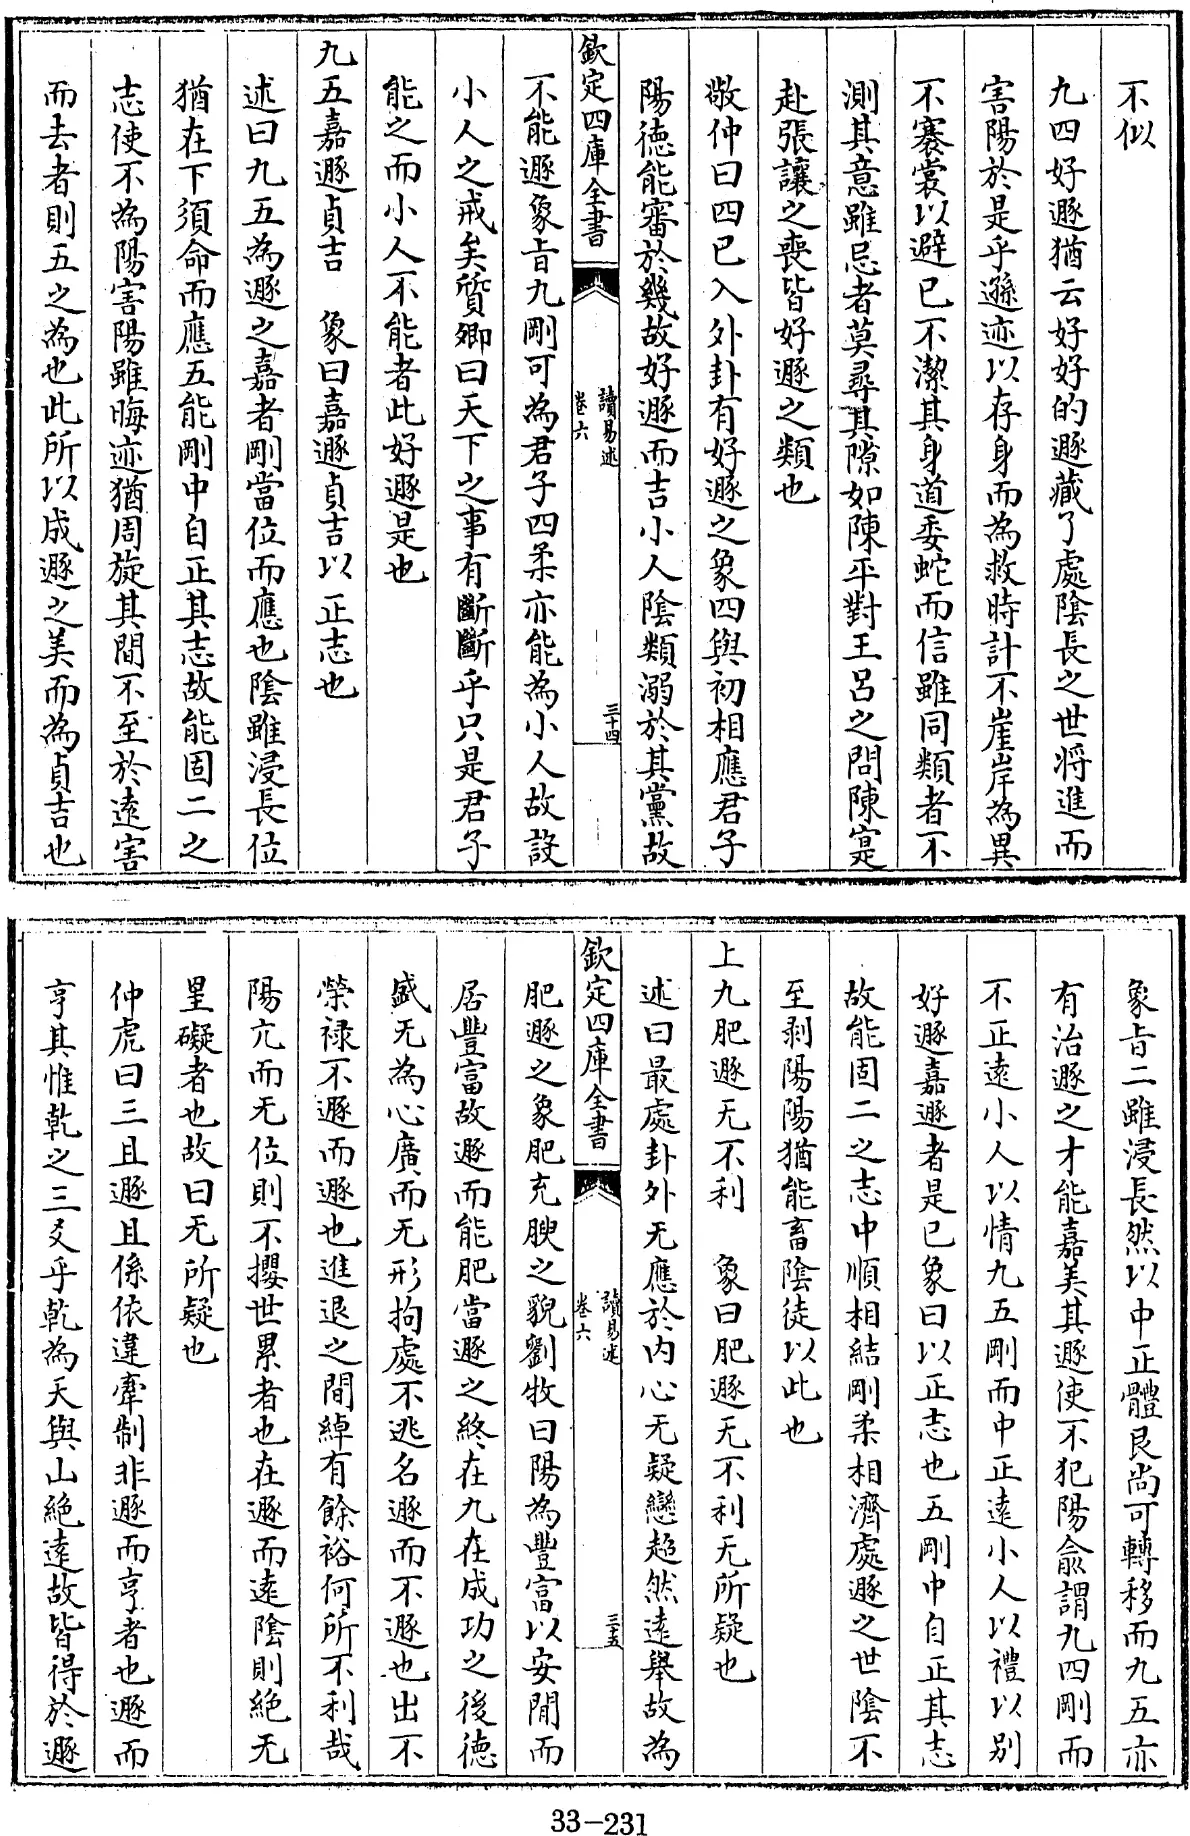 不似
九四好遯猶云好好的遯藏了處隂長之世將進而
害陽於是乎遜迹以存身而為救時計不崖岸為異
不褰裳以避已不潔其身道委蛇而信雖同類者不
測其意雖忌者莫尋其隙如陳平對王呂之問陳寔
赴張讓之喪皆好遯之類也
敬仲曰四已入外卦有好遯之象四與初相應君子
陽徳能審於幾故好遯而吉小人隂類溺於其黨故
欽定四庫全書
讀易述
卷六
三十四
不能遯象旨九剛可為君子四柔亦能為小人故設
小人之戒矣質卿曰天下之事有斷斷乎只是君子
能之而小人不能者此好遯是也
九五嘉遯貞吉 象曰嘉遯貞吉以正志也
述曰九五為遯之嘉者剛當位而應也隂雖浸長位
猶在下須命而應五能剛中自正其志故能固二之
志使不為陽害陽雖晦迹猶周旋其間不至於逺害
而去者則五之為也此所以成遯之美而為貞吉也
象旨二雖浸長然以中正體艮尚可轉移而九五亦
有治遯之才能嘉美其遯使不犯陽俞謂九四剛而
不正逺小人以情九五剛而中正逺小人以禮以别
好遯嘉遯者是已象曰以正志也五剛中自正其志
故能固二之志中順相結剛柔相濟處遯之世隂不
至剥陽陽猶能畜隂徒以此也
上九肥遯无不利 象曰肥遯无不利无所疑也
述曰最處卦外无應於内心无疑戀超然逺舉故為
欽定四庫全書
讀易述
卷六
三十五
肥遯之象肥充腴之貌劉牧曰陽為豐富以安閒而
居豐富故遯而能肥當遯之終在九在成功之後徳
盛无為心廣而无形拘處不逃名遯而不遯也出不
榮禄不遯而遯也進退之間綽有餘裕何所不利哉
陽亢而无位則不攖世累者也在遯而逺隂則絶无
罣礙者也故曰无所疑也
仲虎曰三且遯且係依違牽制非遯而亨者也遯而
亨其惟乾之三爻乎乾為天與山絶逺故皆得於遯
33-231